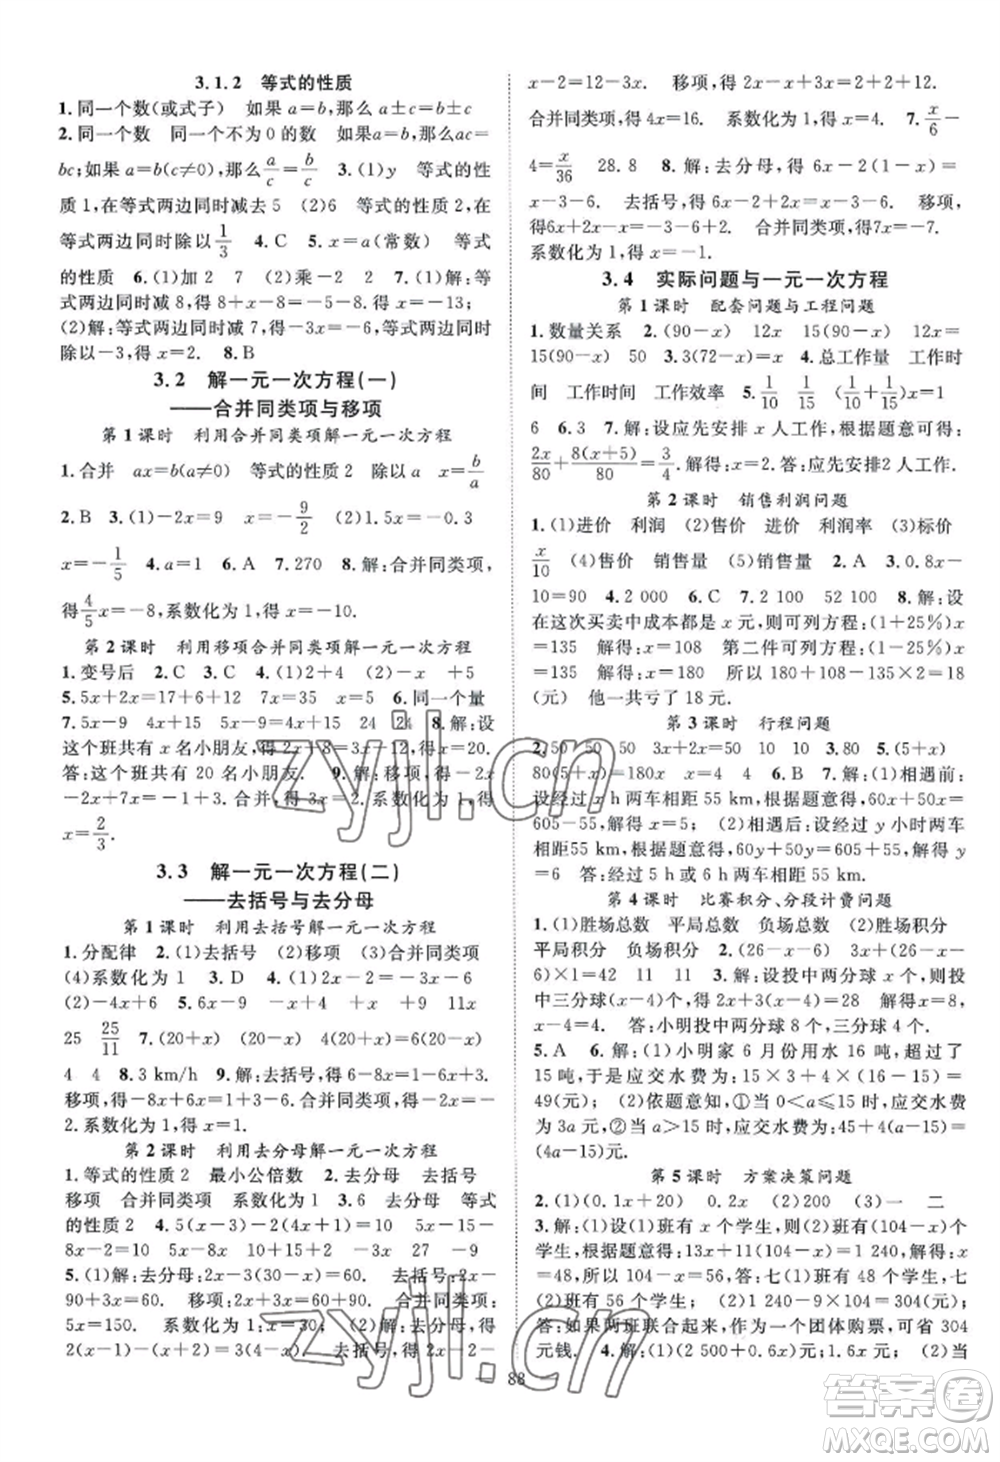 3.1.2 等式的性质
1.同一个数(或式子) 如果 a=b,那么 a±c=b±c
2.同一个数 同一个不为 0 的数 如果a=b,那么ac=
bc;如果 a=b(c≠0),那么a/c=b/c 3.(1)y 等式的性
质 1,在等式两边同时减去 5 (2)6 等式的性质 2,在
等式两边同时除以1/3 4.C 5.x=a(常数) 等式的
性质 6.(1)加 2 7 (2)乘-2 -2 7.(1)解:等
式两边同时减 8,得 8+x-8=-5-8,得 x=-13;
(2)解:等式两边同时减7,得-3x=-6,等式两边同时
除以-3,得 x=2. 8.B
3.2 解一元一次方程(一)
——合并同类项与移项
第 1 课时 利用合并同类项解一元一次方程
1.合并 ax=b(a≠0) 等式的性质 2 除以 a x=b/a
2.B 3.(1)-2x=9 x=-9/2 (2)1.5x=-0.3
x=-1/5 4.a=1 6.A 7.270 8.解:合并同类项,
得4/5x=-8,系数化为 1,得 x=-10.
第 2 课时 利用移项合并同类项解一元一次方程
1.变号后 2.C 3.C 4.(1)+2 -x +5
5.5x+2x=17+6+12 7x=35 x=5 6.同一个量
7.5x-9 4x+15 5x-9=4x+15 24 24 8.解:设
这个班共有 x 名小朋友,得 2x+8=3x-12,得x=20.
答:这个班共有 20 名小朋友. 9.解:移项,得-2x-
4x=-3-1+3. 合并,得-6x=-1,系数化为1,得
x=2/3.
3.3 解一元一次方程(二)
——去括号与去分母
第 1 课时 利用去括号解一元一次方程
1.分配律 2.(1)去括号 (2)移项 (3)合并同类项
(4)系数化为 1 3.D 4.-3x-1 5.(1)4x-6
(2)-4x+6 5.6x-9 +5x 4 -2 +9 11x
25 25/11 7.(20+x) (20-x) 4(20+x)=6(20-x)
4 4 8.3 km/h 9.解:去括号,得 6-8x=-1-6x.
移项,得-8x+6x=1+3-6. 合并同类项,得-2x=
-2. 系数化为 1,得 x=1.
第 2 课时 利用去分母解一元一次方程
1.等式的性质 2 最小公倍数 2.去分母 去括号
移项 合并同类项 系数化为 1 3.6 去分母 等式
的性质 2
5.(1)解:去分母,得2x-3(30-x)=60. 去括号,得2x-
90+3x=60. 移项,得 2x+3x=60+90. 合并同类项,得
5x=150. 系数化为 1,得 x=30. (2)解:去分母,得
2x-(x-1)-(x+2)=3(4-x). 去括号,得 2x-
x-2=12-3x. 移项,得 2x-x-x+3x=2+2+12.
合并同类项,得 4x=16. 系数化为 1,得 x=4. 7.x/6
-4=x/36 28.8 8.解:去分母,得 6x-2(1-x)=
x-3-6. 去括号,得 6x-2+2x=x-3-6. 移项,
得6x+2x-x=-3-6+2. 合并同类项,得7x=-7.
系数化为 1,得 x=-1.
3.4 实际问题与一元一次方程
第 1 课时 配套问题与工程问题
1.数量关系 2.(90-x) 12x 15(90-x) 12x=
15(90-x) 50 3.3(72-x)=x 4.总工作量 工作时
间 工作时间 工作效率 5.1/10 1/15 (1/10+1/15)x=1
6 6.3 7.解:设应先安排 x 人工作,根据题意可得:
2x/80+8(x+5)/80=3/4. 解得:x=2. 答:应先安排2 人工作.
第 2 课时 销售利润问题
1.(1)进价 利润 (2)售价 进价 利润率 (3)标价
x/10 (4)售价 销售量 (5)销售量 2.B 3.0.8x-
10=90 4.2 000 6.C 7.2 000 52 100 8.解:设
在这次买卖中成本都是 x 元,则可列方程:(1+25%)
x=135 解得:x=108 第二件可列方程:(1-25%)x
=135 解得:x=180 所以 180+108-135×2=18
(元) 他一共亏了 18 元.
第 3 课时 行程问题
2.50 50 50 3x=4x-50 10 10 3.80 5.(5+x)
80(5+x)=180x 4 6.B 7.解:(1)相遇前:
设经过 x h 两车相距 55 km,根据题意可得,60x+50x=
605-55,得x=5; (2)相遇后:设经过 y 小时两车
相距55 km,根据题意可得:60y+50y=605+55,得 y
=6 答:经过 5 h 或 6 h 两车相距 55 km.
第 4 课时 比赛积分、分段计费问题
1.(1)胜场总数 平局总数 负场总数 (2)胜场积分
平局积分 负场积分 2.(26-x-5) 3x+(26-x-
5)×1=42 11 4 3.解:设投中两分球 x 个,则投
中三分球(4+x)个. 2x+3(4+x)=28 解得 x=8
4+x=4 答:小明投中两分球 8 个,三分球 4 个.
5.A 6.解:(1)小明家 6 月份用水 16 吨,超过了
15 吨,于是:应交水费为:15×3+4×(16-15)=
49(元) (2)依题意知,①当 0<a≤15 时,应交水费
为 3a 元,②当 a>15 时,应交水费为:45+4(a-15)=
(4a-15)元.
第 5 课时 方案决策问题
2.(1)(0.1x+20) 0.2x (2)200 (3)一 二
3.解:(1)设(1)班有 x 个学生,则(2)班有(104-x)个
学生. 可得方程:13x+11(104-x)=1 240,得x
=48,所以 104-x=56 答:七(1)班有 48 个学生,七
(2)班有 56 个学生; (2)1 240-9×104=304(元)
答:如果两班联合起来,作为一个团体购票,可省 304
元钱. 4.解:(1)(2 500+0.6x)元;1.5x元 (2)当
88
zyjl.cn
答案圈
MXQE.COM